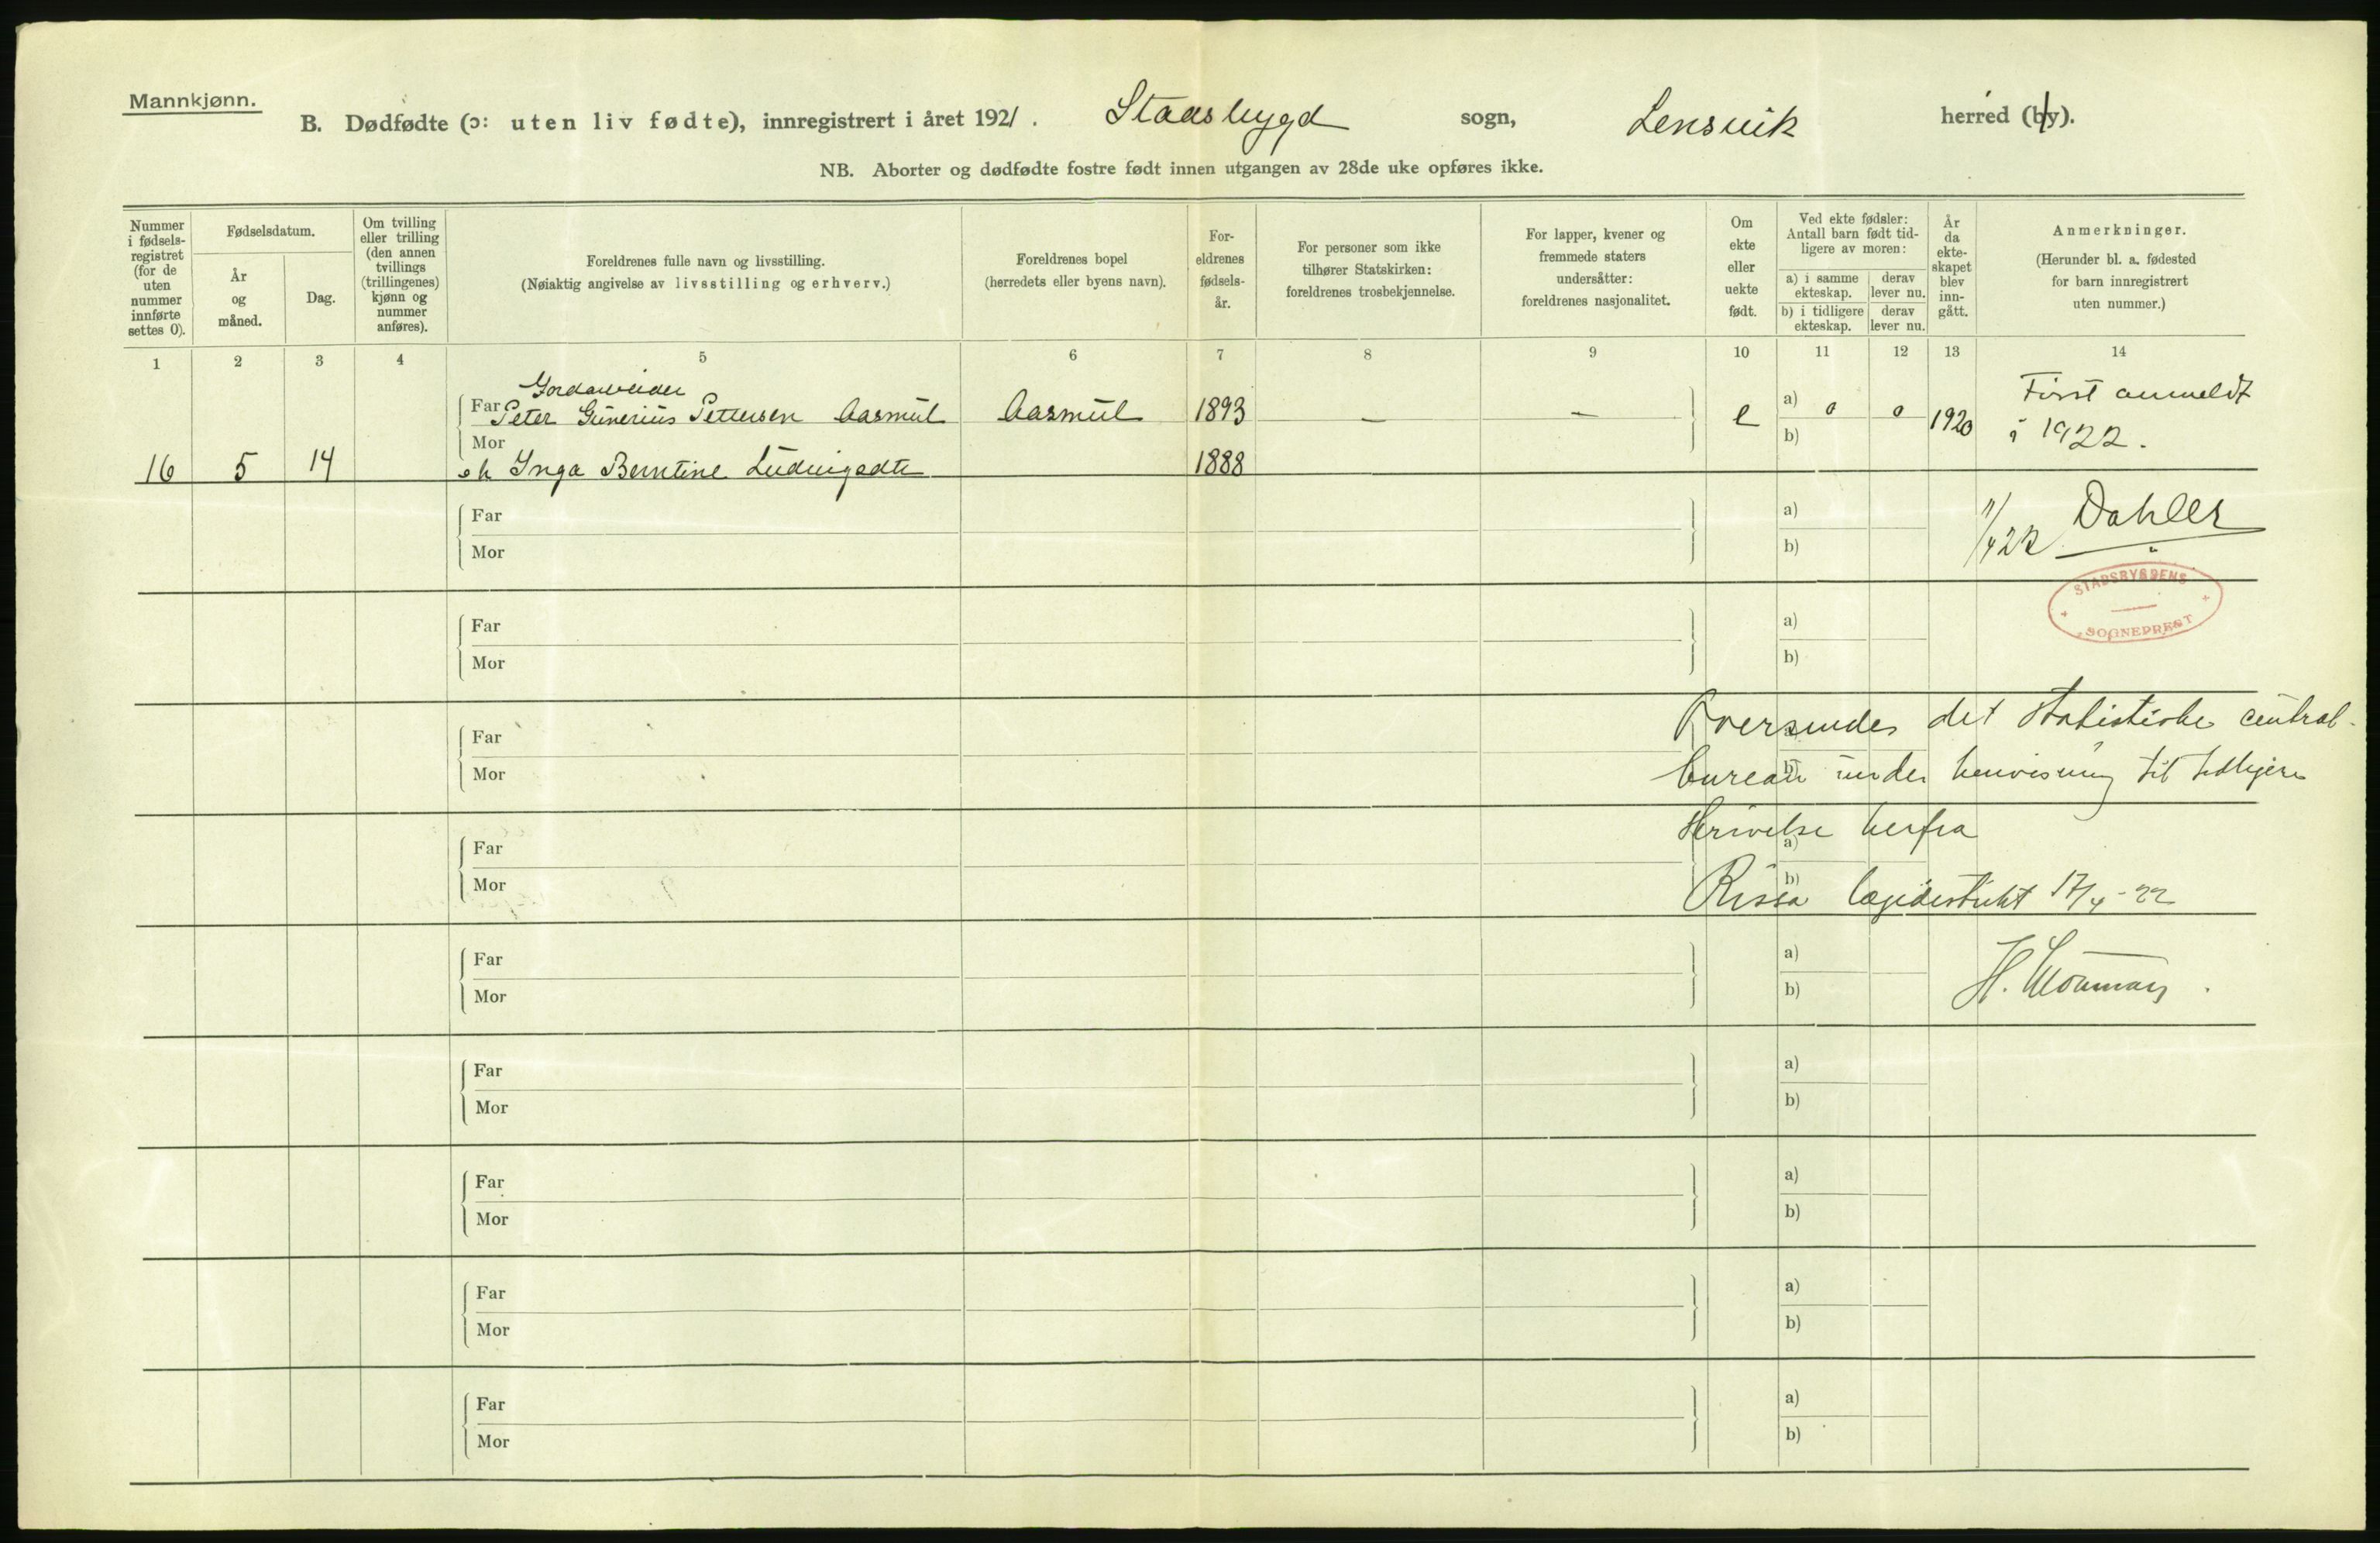 Mannkjønn.
B. Dødfødte (ɔ: uten liv fødte), innregistrert i året 1921. Stadsbygd sogn, Lensvik herred (by).
NB. Aborter og dødfødte fostre født innen utgangen av 28de uke opføres ikke.
Nummer i fødsels-registret (for de uten nummer innførte settes 0).
Fødselsdatum.
År og måned.
Dag.
Om tvilling eller trilling (den annen tvillings (trillingenes) kjønn og nummer anføres).
Foreldrenes fulle navn og livsstilling.
(Nøiaktig angivelse av livsstilling og erhverv.)
Foreldrenes bopel
(herredets eller byens navn).
For-eldrenes fødsels-år.
For personer som ikke tilhører Statskirken: foreldrenes trosbekjennelse.
For lapper, kvener og fremmede staters undersåtter: foreldrenes nasjonalitet.
Om ekte eller uekte født.
Ved ekte fødsler: Antall barn født tid-ligere av moren:
a) i samme ekteskap.
derav lever nu.
b) i tidligere ekteskap.
derav lever nu.
År da ekte-skapet blev inn-gått.
Anmerkninger.
(Herunder bl. a. fødested for barn innregistrert uten nummer.)
1 2 3 4 5 6 7 8 9 10 11 12 13 14
Far Peter Gunerius Pettersen Aasmul Aasmul 1893 — — e a) 0 0 1920 Først anmeldt
Mor b) i 1922.
16 5 14 Inga Berntine Ludvigsdtr 1888
Far a) Dahller
Mor b) 11/4 22
STADSBYGDENS
SOGNEPREST
Far a)
Mor b)
Oversendes det statistiske central-
Far
bureau under henvisning til tidligere
Mor b)
skrivelse herfra
Far a)
Mor b)
Rissa lægedistrikt 17/4-22
Far a)
Mor b) H.
Far a)
Mor b)
Far a)
Mor b)
Far a)
Mor b)
Far a)
Mor b)